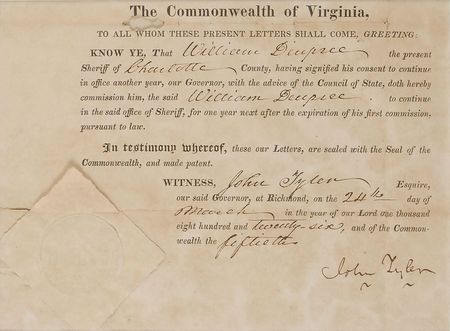 The Commonwealth of Virginia,
TO ALL WHOM THESE PRESENT LETTERS SHALL COME, GREETING:
KNOW YE, That William Dupree the present
Sheriff of Charlotte County, having signified his consent to continue
in office another year, our Governor, with the advice of the Council of State, doth hereby
commission him, the said William Dupree. to continue
in the said office of Sheriff, for one year next after the expiration of his first commission,
pursuant to law.
In testimony whereof, these our Letters, are sealed with the Seal of the
Commonwealth, and made patent.
WITNESS, John Tyler Esquire,
our said Governor, at Richmond, on the 24th day of
March in the year of our Lord one thousand
eight hundred and twenty-six, and of the Common-
wealth the fiftieth
John Tyler